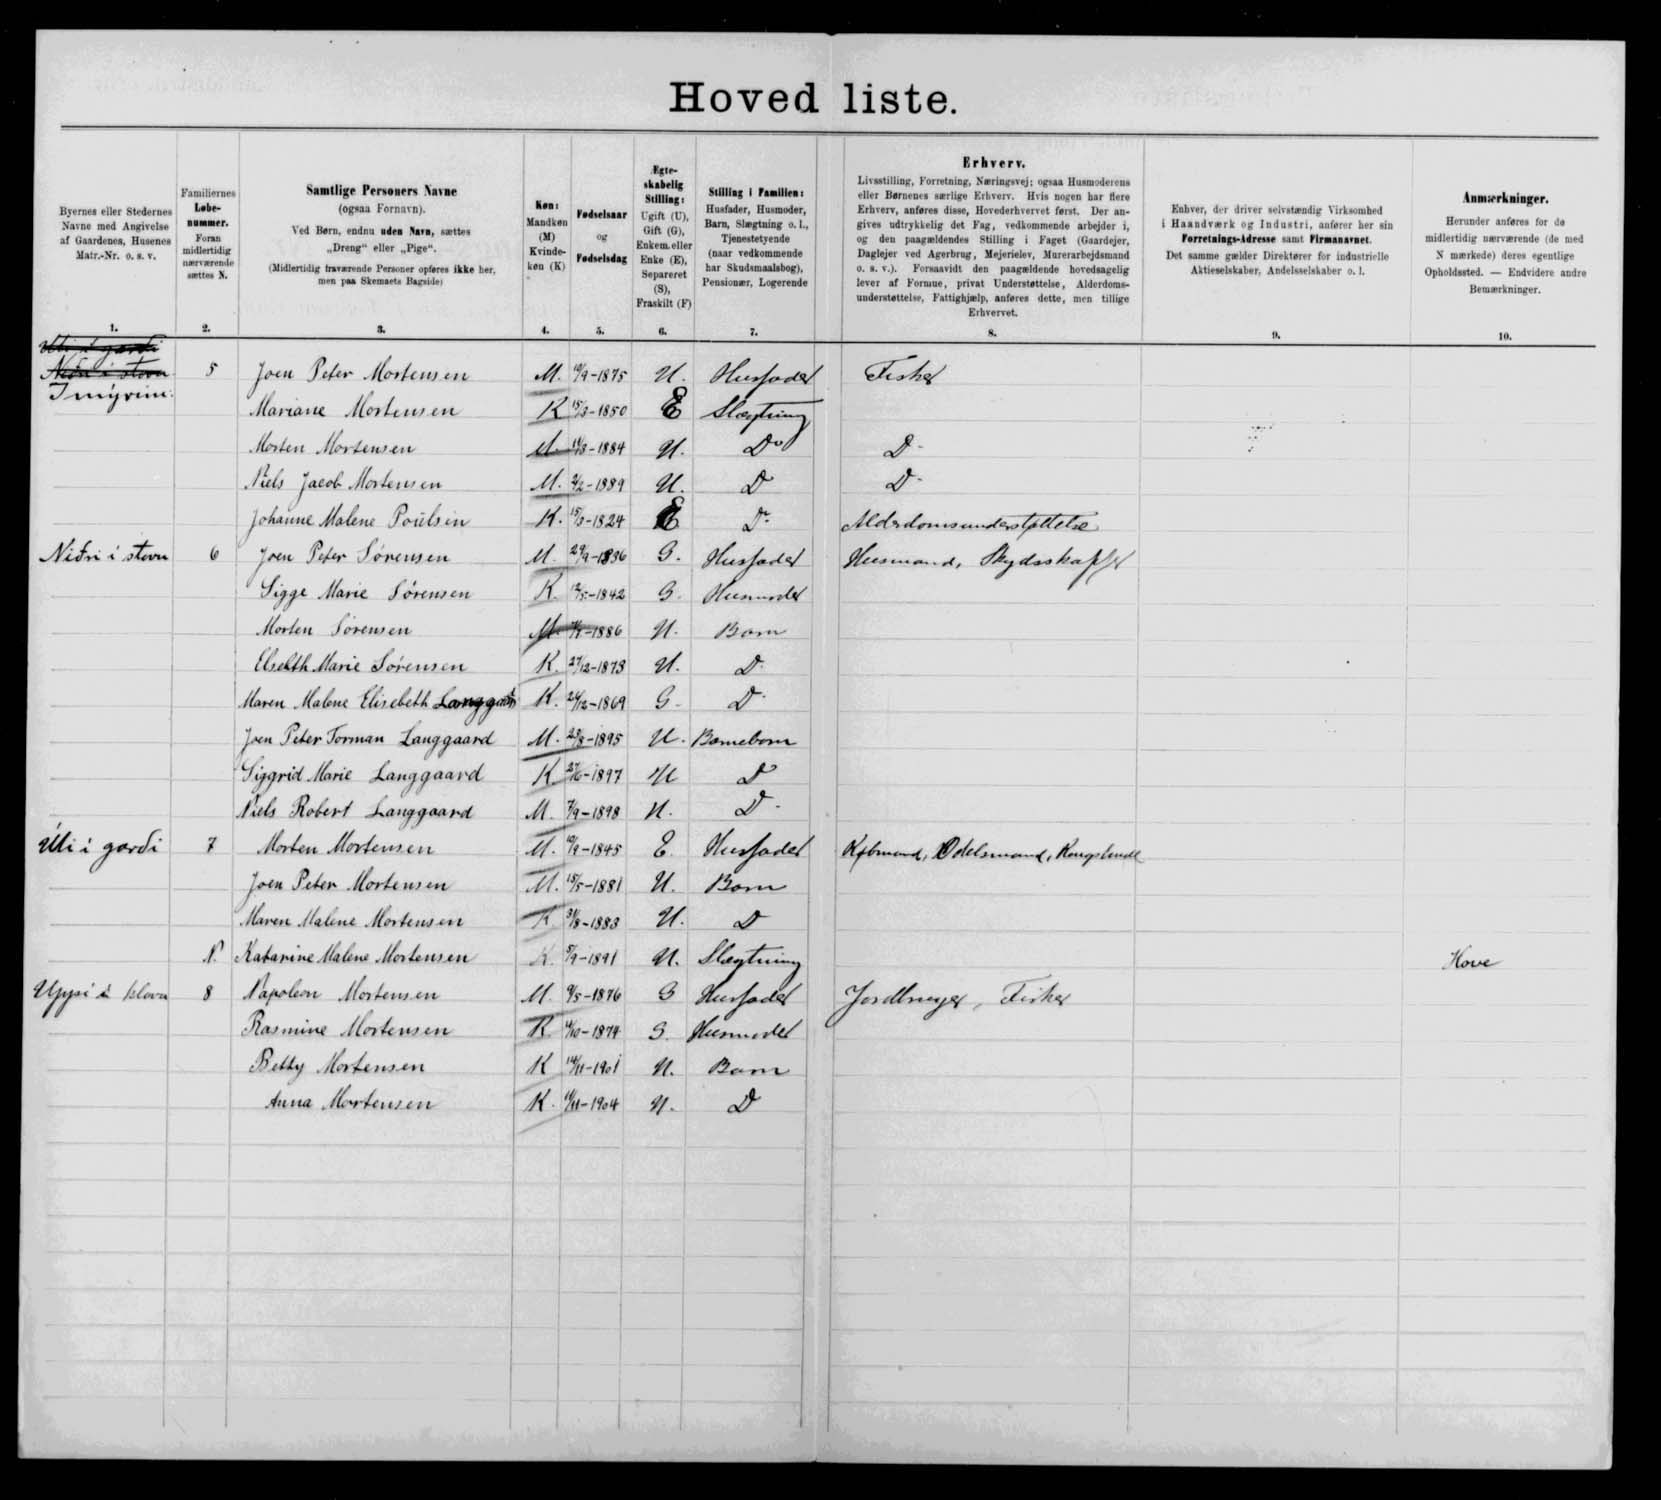 Hoved liste.
Byernes eller Stedernes
Navne med Angivelse
af Gaardenes, Husenes
Matr.-Nr. o. s. v.
1.
Familiernes
Løbe-
nummer.
Foran
midlertidig
nærværende
sættes N.
2.
Samtlige Personers Navne
(ogsaa Fornavn).
Ved Børn, endnu uden Navn, sættes
„Dreng“ eller „Pige“.
(Midlertidig fraværende Personer opføres ikke her,
men paa Skemaets Bagside)
3.
Køn:
Mandkøn
(M)
Kvinde-
køn (K)
4.
Fødselsaar
og
Fødselsdag
5.
Ægte-
skabelig
Stilling:
Ugift (U),
Gift (G),
Enkem. eller
Enke (E),
Separeret
(S),
Fraskilt (F)
6.
Stilling i Familien:
Husfader, Husmoder,
Barn, Slægtning o. l.,
Tjenestetyende
(naar vedkommende
har Skudsmaalsbog),
Pensionær, Logerende
7.
Erhverv.
Livsstilling, Forretning, Næringsvej; ogsaa Husmoderens
eller Børnenes særlige Erhverv. Hvis nogen har flere
Erhverv, anføres disse, Hovederhvervet først. Der an-
gives udtrykkelig det Fag, vedkommende arbejder i,
og den paagældendes Stilling i Faget (Gaardejer,
Daglejer ved Agerbrug, Mejerielev, Murerarbejdsmand
o. s. v.). Forsaavidt den paagældende hovedsagelig
lever af Formue, privat Understøttelse, Alderdoms-
understøttelse, Fattighjælp, anføres dette, men tillige
Erhvervet.
8.
Enhver, der driver selvstændig Virksomhed
i Haandværk og Industri, anfører her sin
Forretnings-Adresse samt Firmanavnet.
Det samme gælder Direktører for industrielle
Aktieselskaber, Andelsselskaber o. l.
9.
Anmærkninger.
Herunder anføres for de
midlertidig nærværende (de med
N mærkede) deres egentlige
Opholdssted. — Endvidere andre
Bemærkninger.
10.
Úti i garði
Niðri i stovu 5 Joen Peter Mortensen M. 10/9-1875 U. Husfader Fisker
I mýrini.
Mariane Mortensen K 15/3-1850 E Slægtning
Morten Mortensen M. 11/3-1884 U. Do D-
Niels Jacob Mortensen M. 2/2-1889 U. D D-
Johanne Malene Poulsen K. 15/3-1824 E D- Alderdomsunderstøttelse
Niðri i stovu 6 Joen Peter Sørensen M. 29/9-1836 G. Husfader Husmand, Skydsskaffer
Sigge Marie Sørensen K. 12/5-1842 G. Husmoder
Morten Sørensen M. 1886 U. Barn
Elsebth Marie Sørensen K. 27/12-1873 U. D
Maren Malene Elisebeth Langgaard K. 24/12-1869 G- D-
Joen Peter Forman Langgaard M. 23/8-1895 U. Barnebarn
Siggrid Marie Langgaard K 27/6-1897 U D
Niels Robert Langgaard M. 7/9-1898 U. D-
Úti i garði 7 Morten Mortensen M. 10/9-1845 E. Husfader Købmand, Odelsmand, Kongsbonde
Joen Peter Mortensen M. 15/5-1881 U. Barn
Maren Malene Mortensen K 31/8-1883 U. D
N. Katarine Malene Mortensen K. 5/9-1891 U. Slægtning Hove
Uppi i stovu 8 Napoleon Mortensen M. 9/5-1876 G Husfader Jordbruger, Fisker
Rasmine Mortensen K. 1874 G. Husmoder
Betty Mortensen K 14/11-1901 U. Barn
Anna Mortensen K. 11/11-1904 U. D